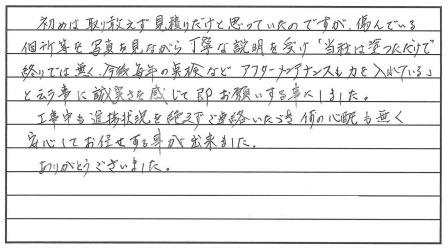 初めは取り敢えず見積りだけと思っていたのですが、傷んでいる
個所等を写真を見ながら丁寧な説明を受け「当社は塗っただけで
終りでは無く、今後毎年の点検など アフターメンテナンスも力を入れている」
と云う事に誠実さを感じて即お願いする事にしました。
工事中も進捗状況を絶えずご連絡いただき何の心配も無く
安心してお任せする事が出来ました。
ありがとうございました。